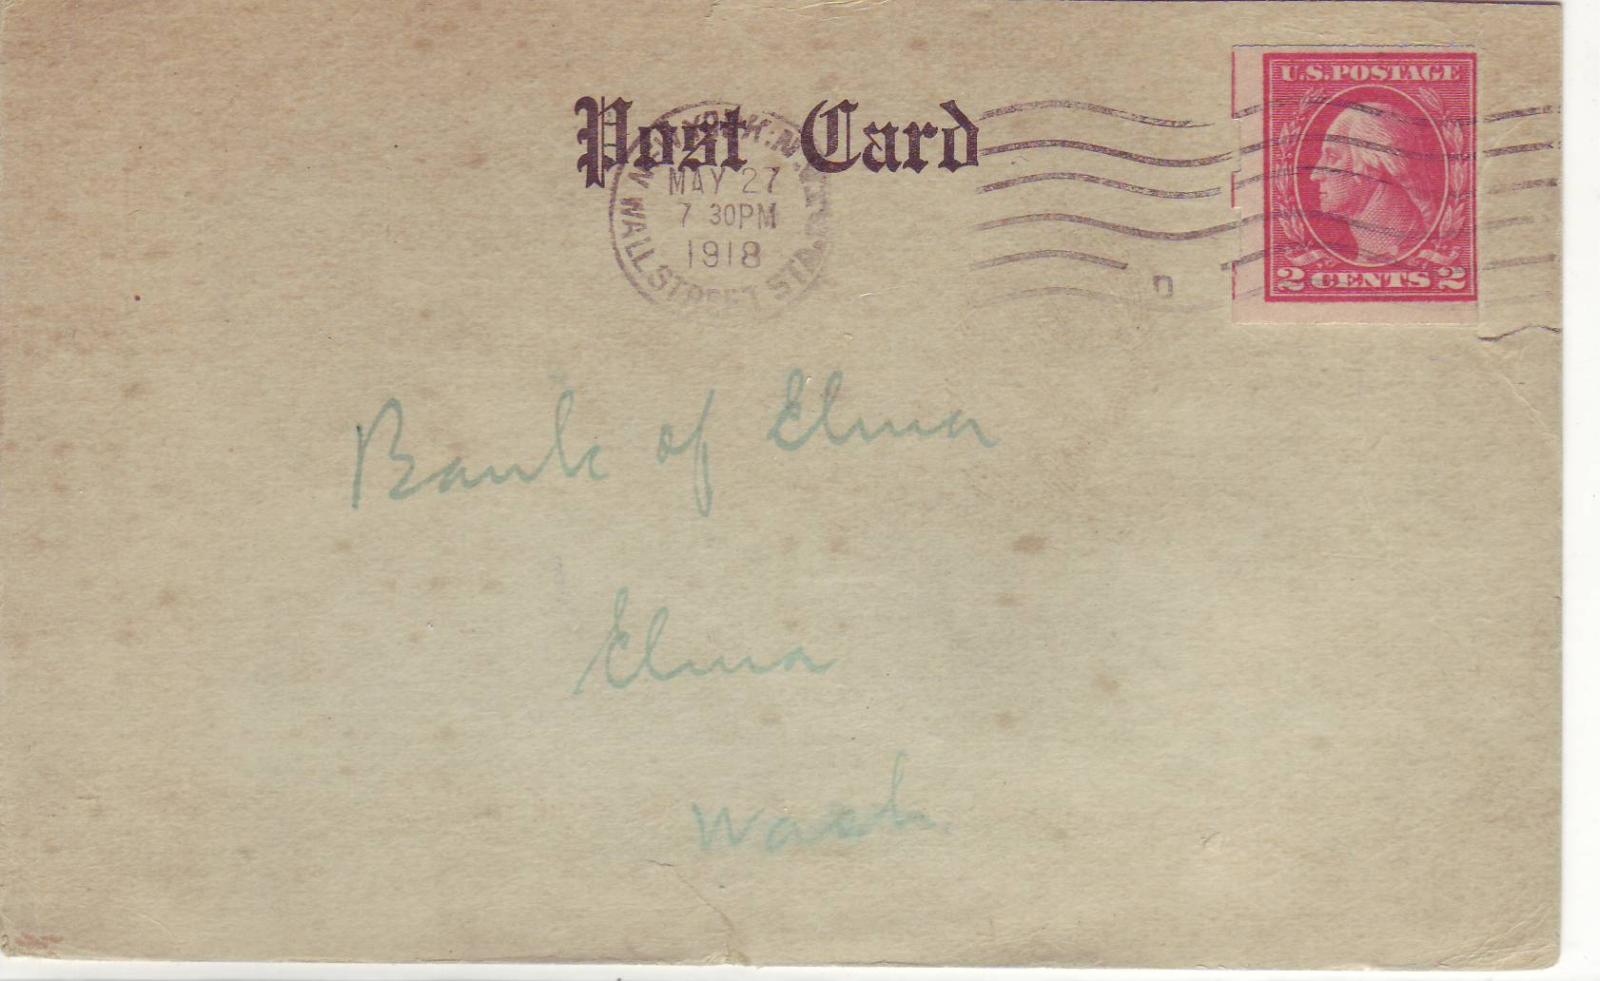 Post Card
U.S. POSTAGE
2 CENTS 2
MAY 27
7 30PM
1918
WALL STREET STA.
D
Bank of Elma
Elma
Wash.